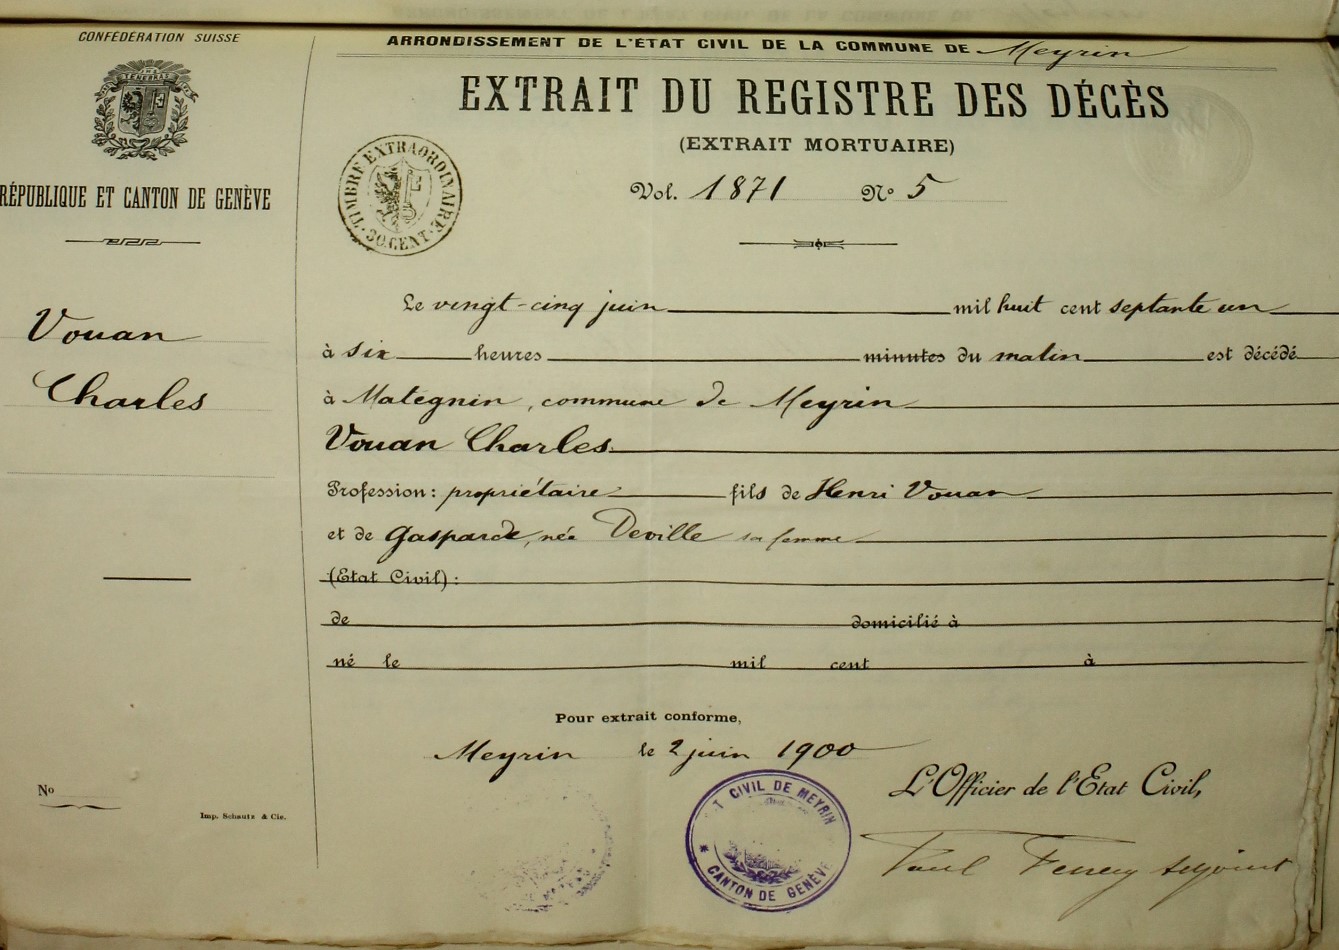 CONFÉDÉRATION SUISSE
RÉPUBLIQUE ET CANTON DE GENÈVE
Vouan
Charles
No
Imp. Schautz & Cie.
ARRONDISSEMENT DE L'ÉTAT CIVIL DE LA COMMUNE DE Meyrin
EXTRAIT DU REGISTRE DES DÉCÈS
(EXTRAIT MORTUAIRE)
TIMBRE EXTRAORDINAIRE
30 CENT.
Vol. 1871 No 5
Le vingt-cinq juin mil huit cent septante un
à six heures minutes du matin est décédé
à Mategnin, commune de Meyrin
Vouan Charles
Profession: propriétaire fils de Henri Vouan
et de Gasparde, née Deville sa femme
(Etat Civil):
de domicilié à
né le mil cent à
Pour extrait conforme,
Meyrin le 2 juin 1900
L'Officier de l'Etat Civil,
T CIVIL DE MEYRIN
* CANTON DE GENÈVE
Paul adjoint